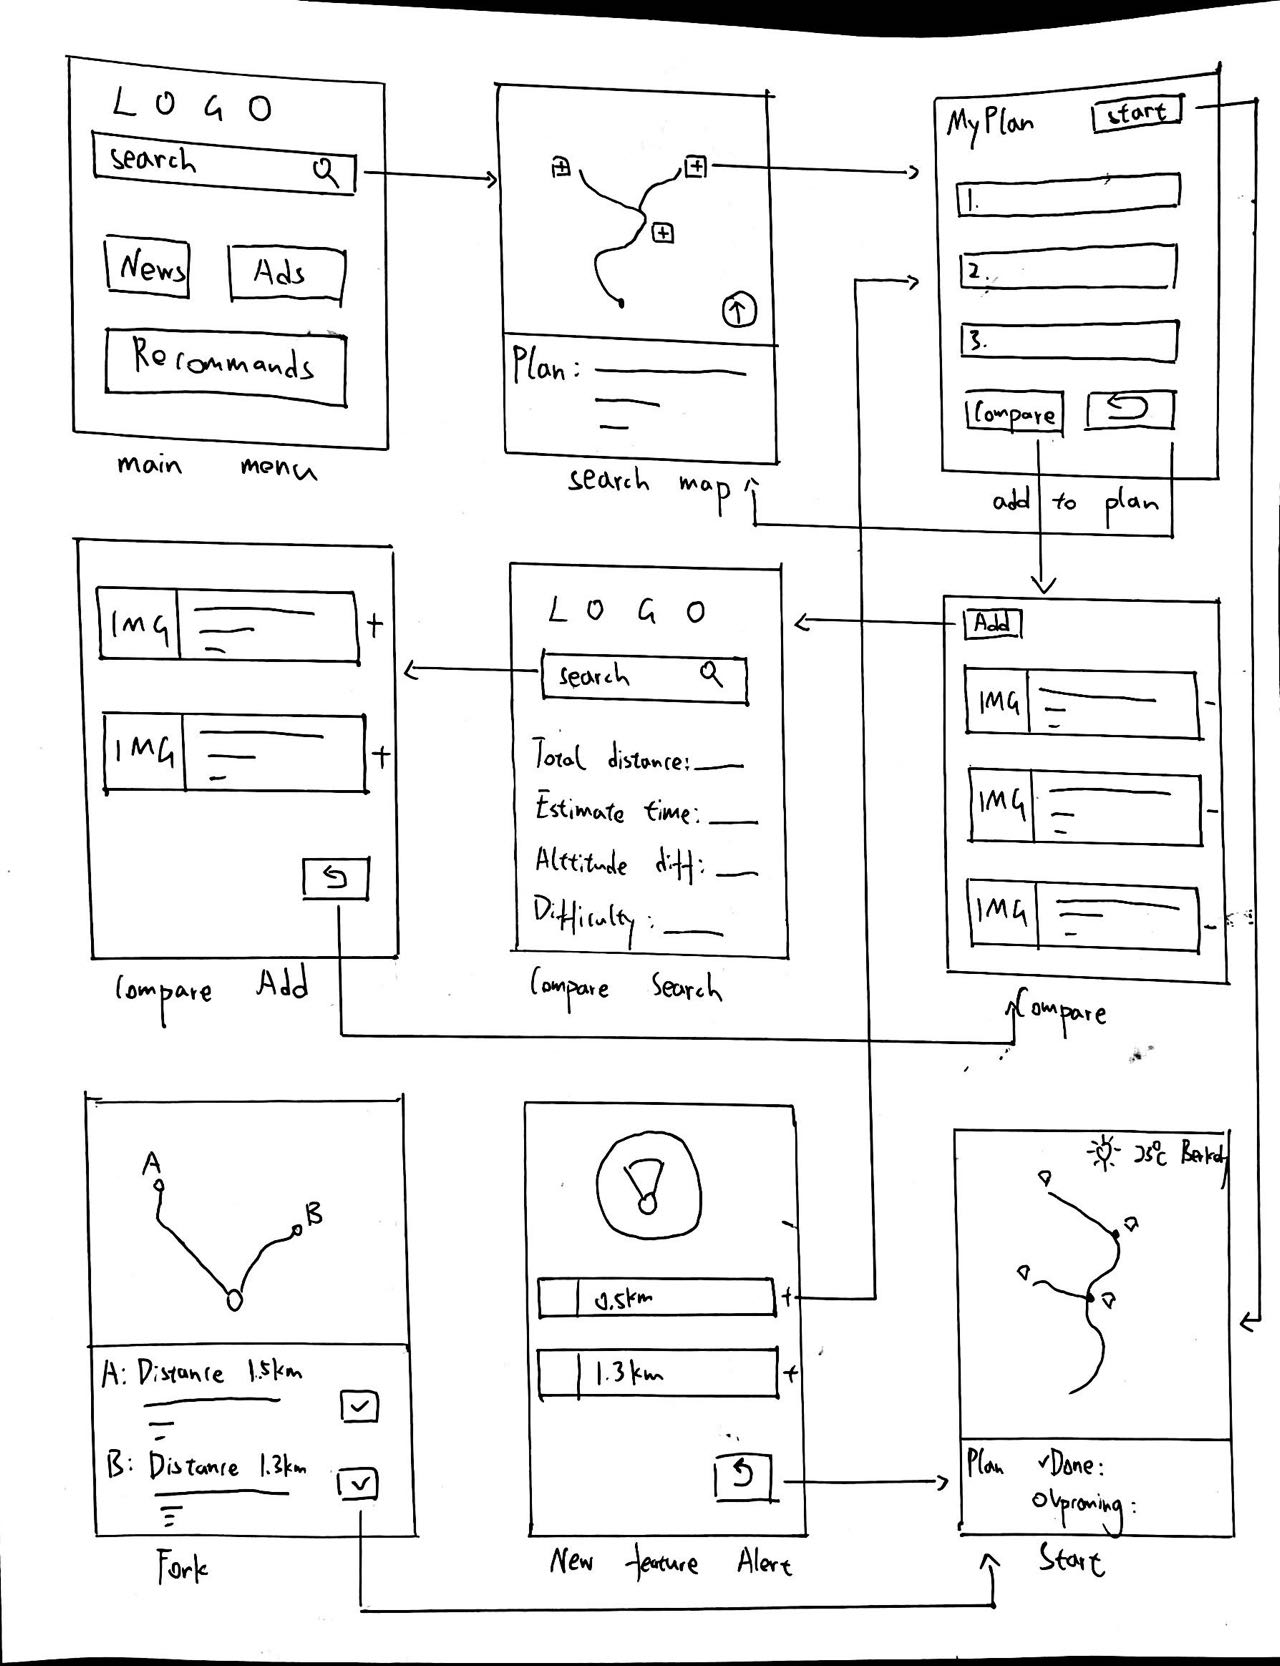 LOGO
search
News
Ads
Recommands
main menu
Plan:
search map
MyPlan
start
1.
2.
3.
Compare
add to plan
IMG
+
IMG
+
Compare Add
LOGO
search
Total distance:
Estimate time:
Alttitude diff:
Difficulty:
Compare Search
Add
IMG
-
IMG
-
IMG
-
Compare
A
B
A: Distance 1.5km
B: Distance 1.3km
Fork
0.5km
+
1.3km
+
New feature Alert
Plan
Done:
Upcoming:
Start